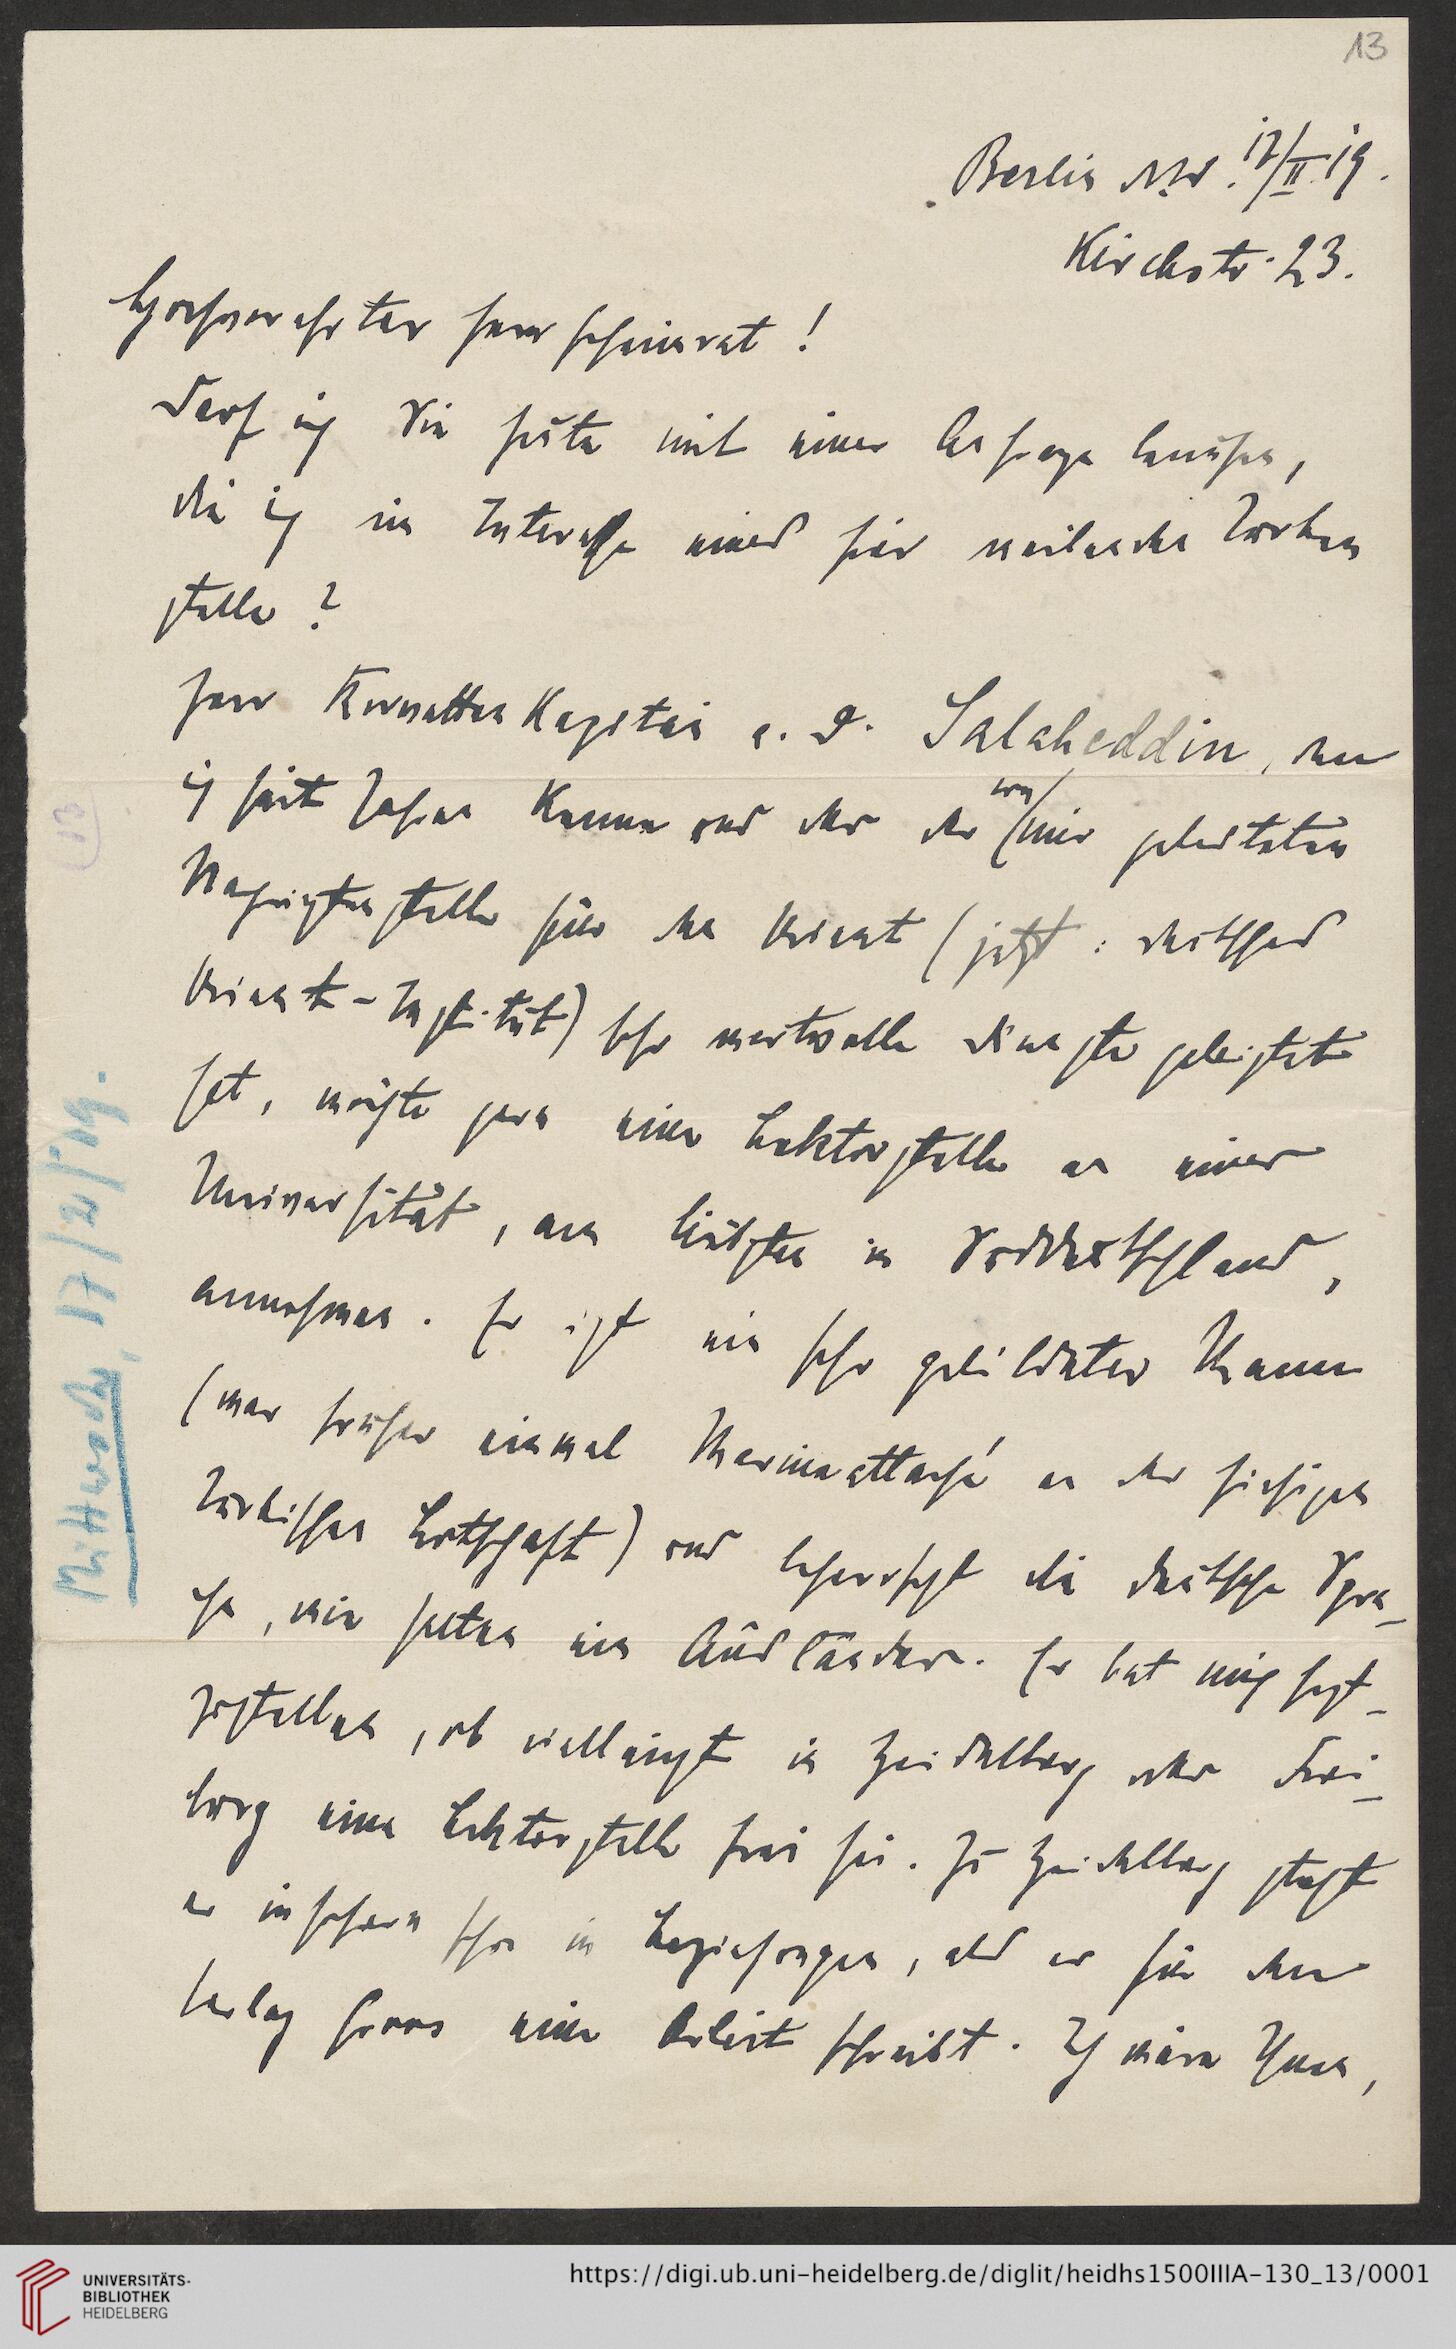 13
Berlin NW. 17/II.19.
Kirchstr. 23.
Hochverehrter Herr Geheimrat!
Darf ich Sie heute mit einer Anfrage bemühen,
die ich im Interesse eines hier weilenden Türken
stelle?
Herr Korvetten Kapitän a. D. Salaheddin, den
ich seit Jahren kenne und der der von mir geleiteten
Nachrichtenstelle für den Orient (jetzt: Deutsches
Orient-Institut) sehr wertvolle Dienste geleistet
hat, möchte gern eine Lektorstelle an einer
Universität, am liebsten in Süddeutschland,
annehmen. Er ist ein sehr gebildeter Mann
(war früher einmal Marineattaché an der hiesigen
türkischen Botschaft) und beherrscht die deutsche Spra-
che, wie selten ein Ausländer. Er bat mich fest-
zustellen, ob vielleicht in Heidelberg oder Frei-
burg eine Lektorstelle frei sei. Zu Heidelberg steht
er insofern schon in Beziehungen, als er für den
Verlag Groos eine Arbeit schreibt. Ich wäre Ihnen,
(13)
Mittwoch, 17/2/19.
UNIVERSITÄTS-
BIBLIOTHEK
HEIDELBERG
https://digi.ub.uni-heidelberg.de/diglit/heidhs1500IIIA-130_13/0001